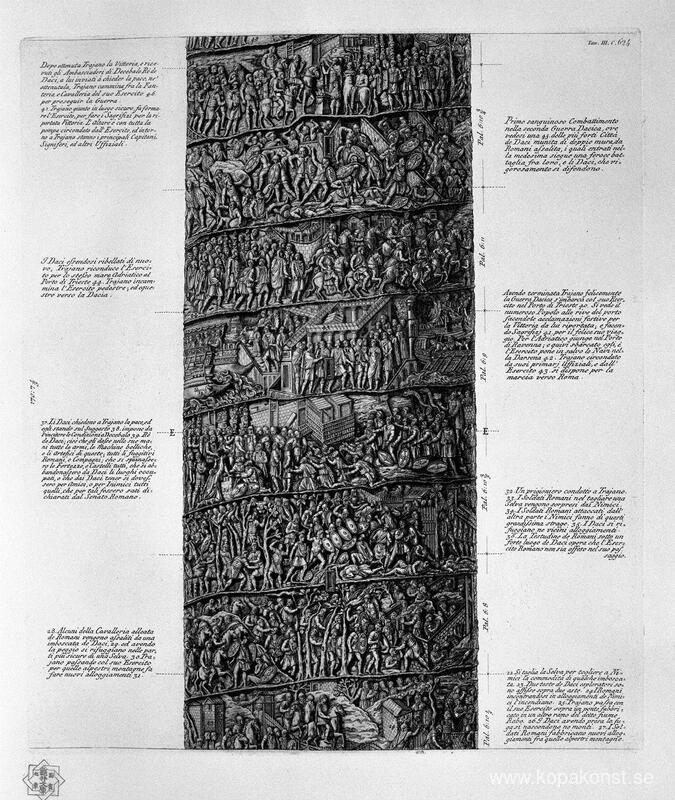 Tav. III. C. 624
Dopo ottenuta Trajano la Vittoria, e rice-
vuti gli Ambasciadori di Decebalo Rè de
Daci, a lui inviati à chieder la pace, nè
ottenutala, Trajano cammina, fra la Fan-
teria e Cavalleria del suo Esercito 46.
per proseguir la Guerra.
47. Trajano giunto in luogo sicuro, fa forma-
re l'Esercito, per fare i Sagrifizj per la ri-
portata Vittoria. L'Altare è con tutta la
pompa circondato dall'Esercito, ed inter-
no a Trajano stanno i principali Capitani,
Signiferi, ed altri Uffiziali.
Primo sanguinoso Combattimento
nella seconda Guerra Dacica, ove
vedesi una 45. delle più forti Città
de Daci munita di doppie mura, da
Romani assalita, i quali entrati nel-
la medesima siegue una feroce bat-
taglia fra loro, e li Daci, che vi-
gorosamente si difendono.
I Daci essendosi ribellati di nuo-
vo, Trajano riconduce l'Eserci-
to per lo stesso mare Adriatico al
Porto di Trieste 44. Trajano incam-
mina l'Esercito pedestre, ed eque-
stre verso la Dacia.
Avendo terminata Trajano felicemente
la Guerra Dacica s'imbarca col suo Eser-
cito nel Porto di Trieste 40. Si vede il
numeroso Popolo alle rive del porto
facendole acclamazioni festive per
la Vittoria da lui riportata, e facen-
do Sagrifizj 41. per il felice suo viag-
gio. Per l'Adriatico giunge nel Porto
di Ravenna; e quivi sbarcato esso, è
l'Esercito pone in salvo le Navi nel-
la Darsena 42. Trajano circondato
da suoi primarj Uffiziali, e dall'
Esercito 43. si dispone per la
marcia verso Roma.
37. Li Daci chiedono a Trajano la pace, ed
egli stando sul Suggesto 38. impone da
Vincitore le Condizioni a Decebalo 39. Rè
de Daci; cioè che gli dasse nelle sue ma-
ni tutte le armi, le Machine belliche,
e li Artefici di queste; tutti li fuggitivi
Romani, e Compagni; che si spianasse-
ro le Fortezze, e Castelli tutti, che si ab-
bandonassero da Daci li luoghi occu-
pati, e che dai Daci tener si doves-
sero per Amici, o per Inimici tutti
quelli, che per tali fossero stati di-
chiarati dal Senato Romano.
E
E
32. Un prigioniero condotto a Trajano.
33. I Soldati Romani nel tagliare una
Selva vengono sorpresi dai Nimici.
34. I Soldati Romani attaccati dall'
altra parte i Nimici fanno di questi
grandissima strage. 35. I Daci si ri-
fuggiano ne vicini alloggiamenti.
36. La Testudine de Romani sotto un
forte luogo de Daci opera che l'Eser-
cito Romano non sia offeso nel suo pas-
saggio.
28. Alcuni della Cavalleria alleata
de Romani vengono assaliti da una
imboscata de Daci, 29. ed avendo
la peggio si rifuggiano nelle par-
ti più sicure di una Selva. 30. Tra-
jano passando col suo Esercito
per quelle alpestri montagne, fa
fare nuovi alloggiamenti 31.
22. Si taglia la Selva per togliere a Ni-
mici la commodità di qualche imbosca-
ta. 23. Due teste de Daci esploratori so-
no affisse sopra due aste. 24. I Romani
incontrandosi in alloggiamenti de Nimi-
ci l'incendiano. 25. Trajano passa con
il suo Esercito sopra un ponte fabbri-
cato in un altro ramo del detto fiume
Rabo. 26. I Daci avendo presa la fu-
ga si nascondono ne monti. 27. I Sol-
dati Romani fabbricano nuovi allog-
giamenti fra quelle alpestri montagne.
Pal. 6. 11
Pal. 6. 9
Pal. 6. 8
www.kopakonst.se